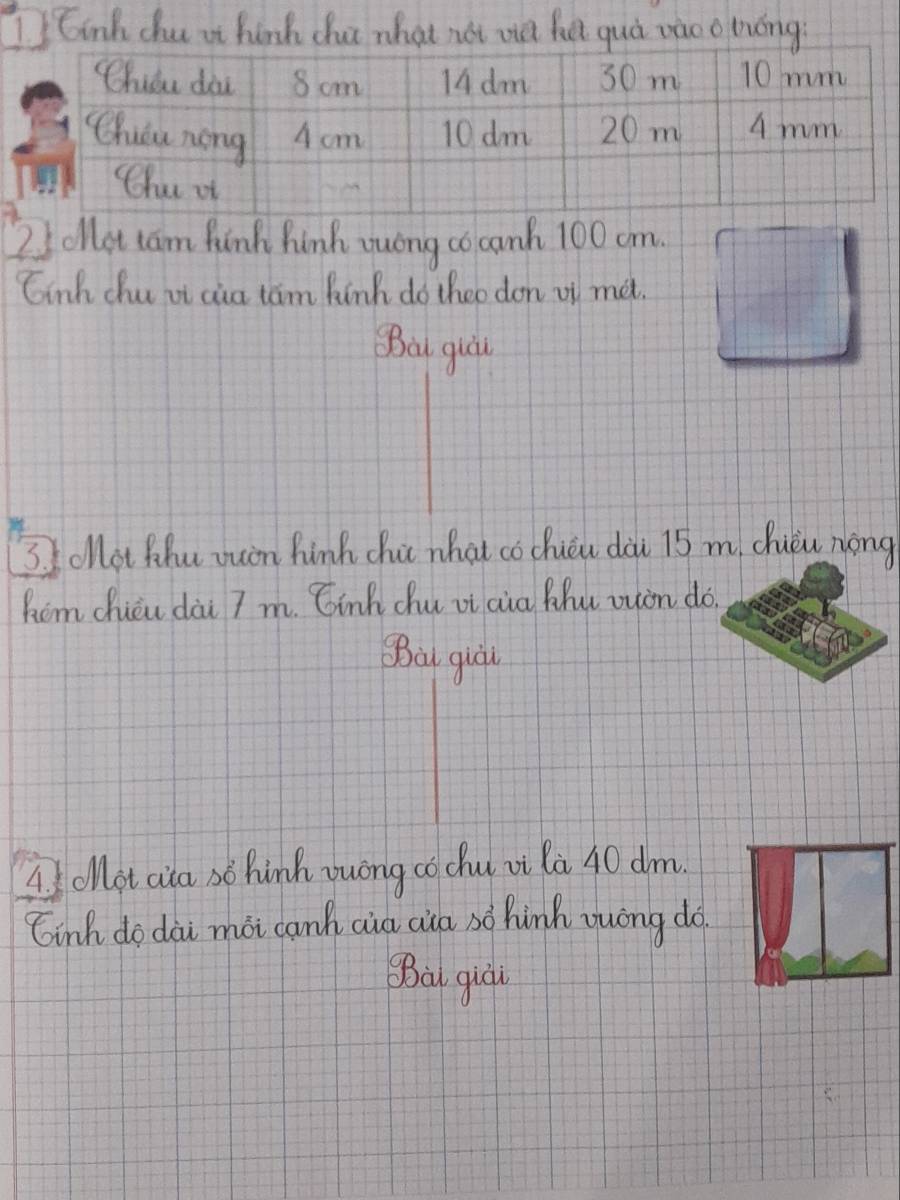 1. Tính chu vi hình chữ nhật rồi viết kết quả vào ô trống:
Chiều dài 8 cm 14 dm 30 m 10 mm
Chiều rộng 4 cm 10 dm 20 m 4 mm
Chu vi
2. Một tấm kính hình vuông có cạnh 100 cm.
Tính chu vi của tấm kính đó theo đơn vị mét.
Bài giải
3. Một khu vườn hình chữ nhật có chiều dài 15 m, chiều rộng
kém chiều dài 7 m. Tính chu vi của khu vườn đó.
Bài giải
4. Một cửa sổ hình vuông có chu vi là 40 dm.
Tính độ dài mỗi cạnh của cửa sổ hình vuông đó.
Bài giải